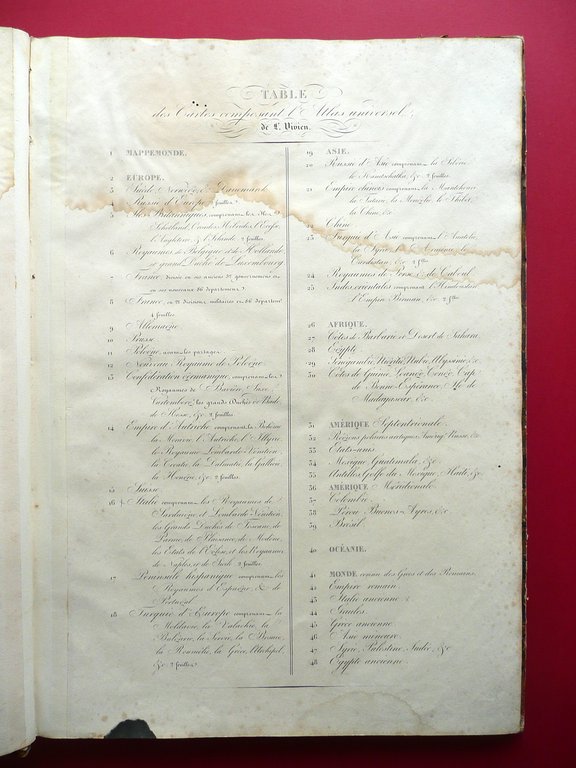 TABLE
des Cartes composant l'Atlas universel,
de L. Vivien.
1 MAPPEMONDE.
2 EUROPE.
3 Suède, Norvège & Danemark
4 Russie d'Europe 2 feuilles
5 Iles Britanniques, comprenant les Iles
Shetland, Orcades, Hébrides, l'Ecosse
l'Angleterre & l'Irlande 2 feuilles
6 Royaumes de Belgique et de Hollande
et grand Duché de Luxembourg
7 France divisée en ses anciens 32 gouvernemens et
en ses nouveaux 86 départemens
8 France, en 21 divisions militaires et 86 départemens
4 feuilles
9 Allemagne
10 Prusse
11 Pologne, avant les partages
12 Nouveau Royaume de Pologne
13 Confédération germanique, comprenant les
Royaumes de Bavière, Saxe
Wurtemberg, les grands Duchés de Bade
de Hesse, &c 2 feuilles
14 Empire d'Autriche comprenant la Bohême
la Moravie, l'Autriche, l'Illyrie
le Royaume Lombardo-Vénitien
la Croatie, la Dalmatie, la Gallicie
la Hongrie, &c 2 feuilles
15 Suisse
16 Italie comprenant les Royaumes de
Sardaigne et Lombardo-Vénitien
les Grands Duchés de Toscane, de
Parme, de Plaisance, de Modène
les Etats de l'Eglise, et les Royaumes
de Naples, et de Sicile 2 feuilles
17 Peninsule hispanique comprenant les
Royaumes d'Espagne & de
Portugal
18 Turquie d'Europe comprenant la
Moldavie, la Valachie, la
Bulgarie, la Servie, la Bosnie,
la Roumélie, la Grèce, l'Archipel,
&c 2 feuilles
19 ASIE.
20 Russie d'Asie comprenant la Sibérie
le Kamtschatka, &c 2 feuilles
21 Empire chinois comprenant la Mantchourie
la Tatarie, la Mongolie, le Thibet,
la Chine, &c
22 Chine
23 Turquie d'Asie comprenant l'Anatolie,
la Syrie, l'Arménie, le
Curdistan, &c 2 flles
24 Royaumes de Perse & de Caboul
25 Indes orientales comprenant l'Hindoustan
l'Empire Birman, &c 2 flles
26 AFRIQUE.
27 Côtes de Barbarie et Désert de Sahara
28 Egypte
29 Sénégambie, Nigritie, Nubie, Abyssinie, &c
30 Côtes de Guinée, Loango, Congo, Cap
de Bonne-Espérance, Iles de
Madagascar, &c
31 AMÉRIQUE Septentrionale
32 Régions polaires arctiques, Amérique Russe, &c
33 Etats-unis
34 Mexique, Guatemala, &c
35 Antilles, Golfe du Mexique, Haiti, &c
36 AMÉRIQUE Méridionale
37 Colombie
38 Pérou, Buenos-Ayres, &c
39 Brésil
40 OCÉANIE.
41 MONDE connu des Grecs et des Romains
42 Empire romain
43 Italie ancienne
44 Gaules
45 Grèce ancienne
46 Asie mineure
47 Syrie, Palestine, Judée, &c
48 Egypte ancienne